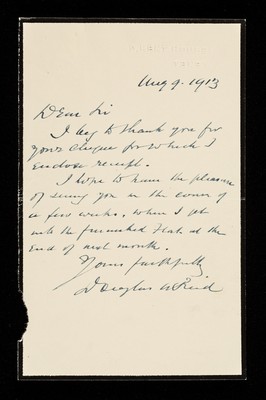 Aug 9. 1913
Dear Sir
I beg to thank you for
your cheque for which I
enclose receipt.
I hope to have the pleasure
of seeing you in the course of
a few weeks, when I get
into the furnished flat at the
end of next month.
Yours faithfully
Douglas A Reid